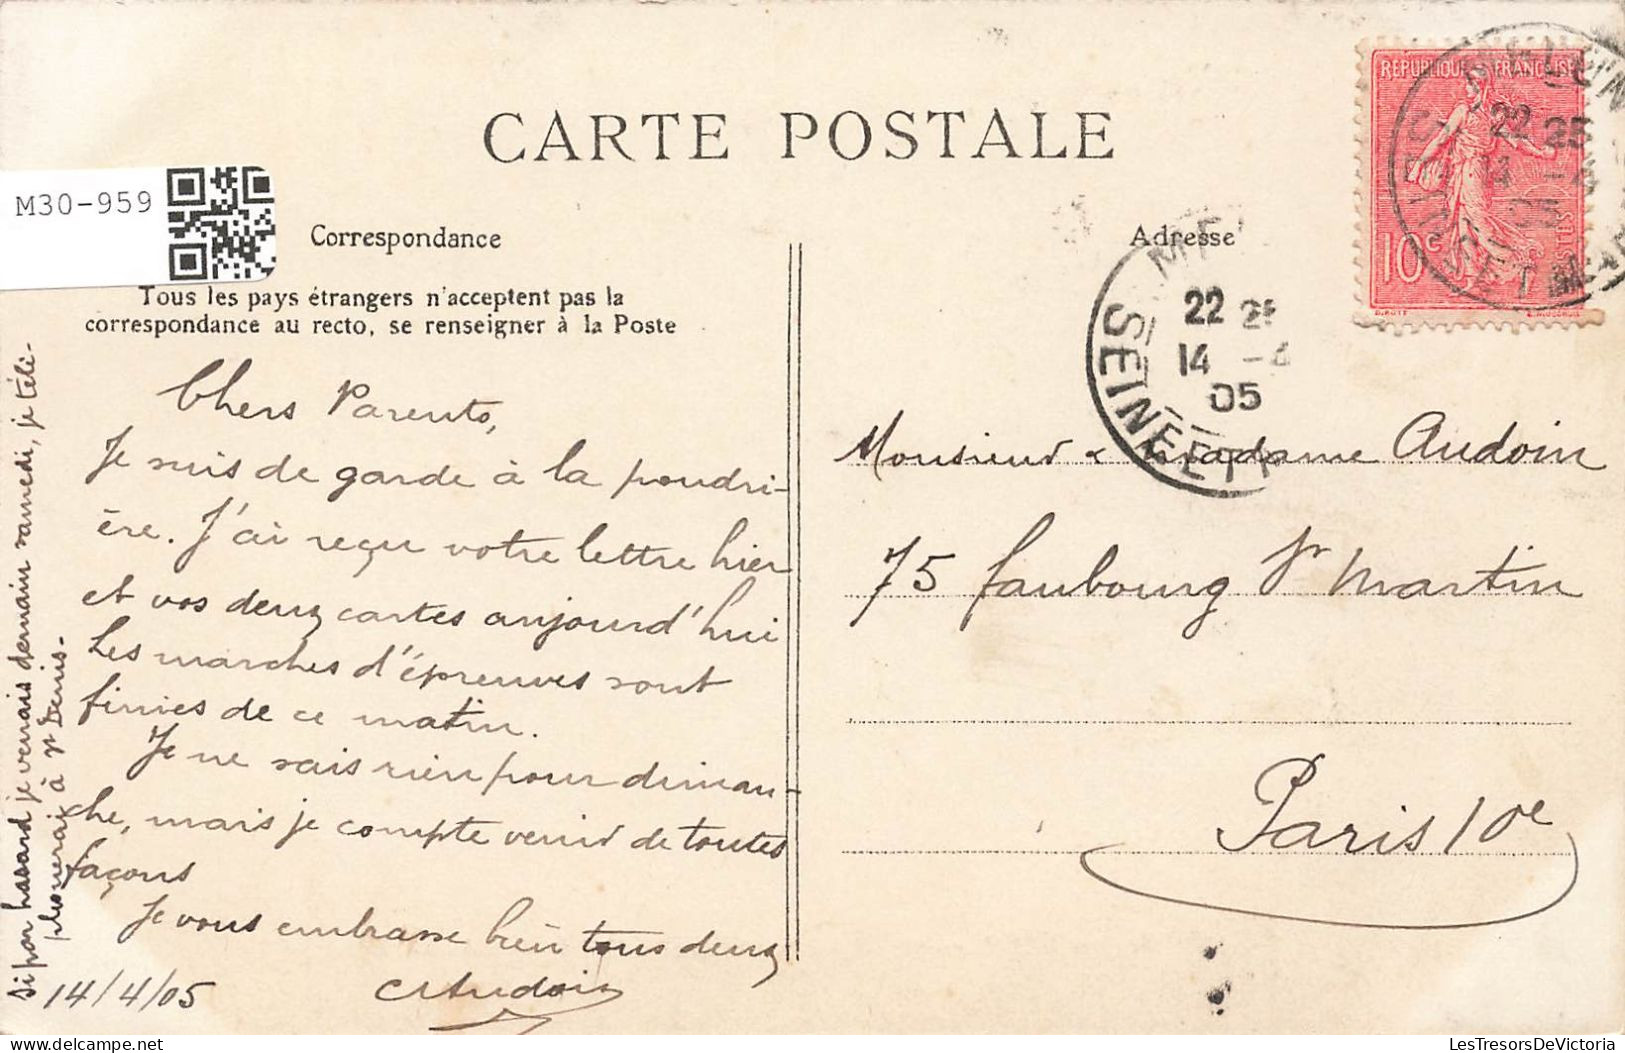 CARTE POSTALE
M30-959
Correspondance
Tous les pays étrangers n'acceptent pas la
correspondance au recto, se renseigner à la Poste
Chers Parents,
Je suis de garde à la poudri-
ère. J'ai reçu votre lettre hier
et vos deux cartes aujourd'hui
Les marches d'épreuves sont
finies de ce matin.
Je ne sais rien pour diman-
che, mais je compte venir de toutes
façons
Je vous embrasse bien tous deux
Audoin
14/4/05
si par hasard je venais demain samedi, je télé-
phonerai à St Denis-
Adresse
REPUBLIQUE FRANÇAISE
10c
POSTES
O.ROTY
E.MOUCHON
MELUN
22 25
14 -4
05
SEINE ET M
22 25
14 -4
05
SEINE ET
Monsieur & Madame Audoin
75 faubourg St Martin
Paris 10e
LesTresorsDeVictoria